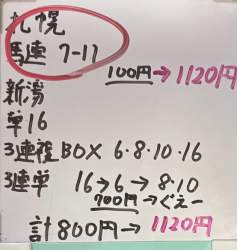 札幌
馬連 7-11
100円→1120円
新潟
単16
3連複BOX 6・8・10・16
3連単 16→6→8・10
700円→ぐえー
計800円→1120円